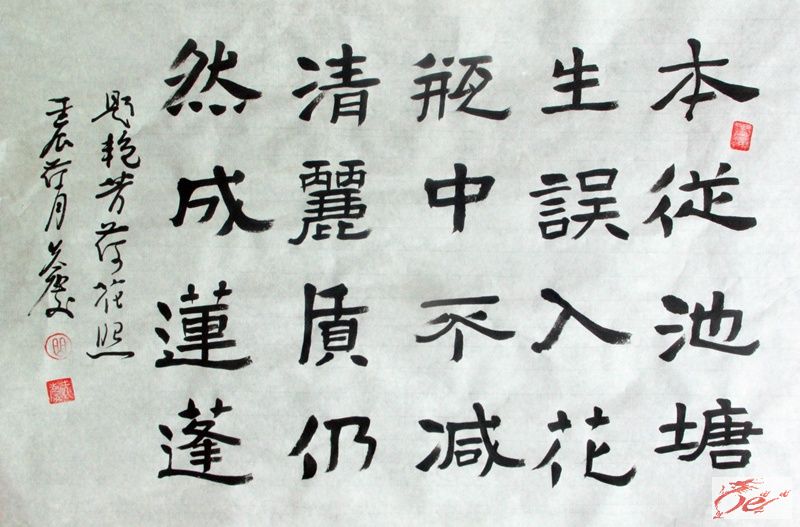 本從池塘
生誤入花
瓶中不减
清麗质仍
然成蓮蓬
题艳芳荷花照
壬辰荷月